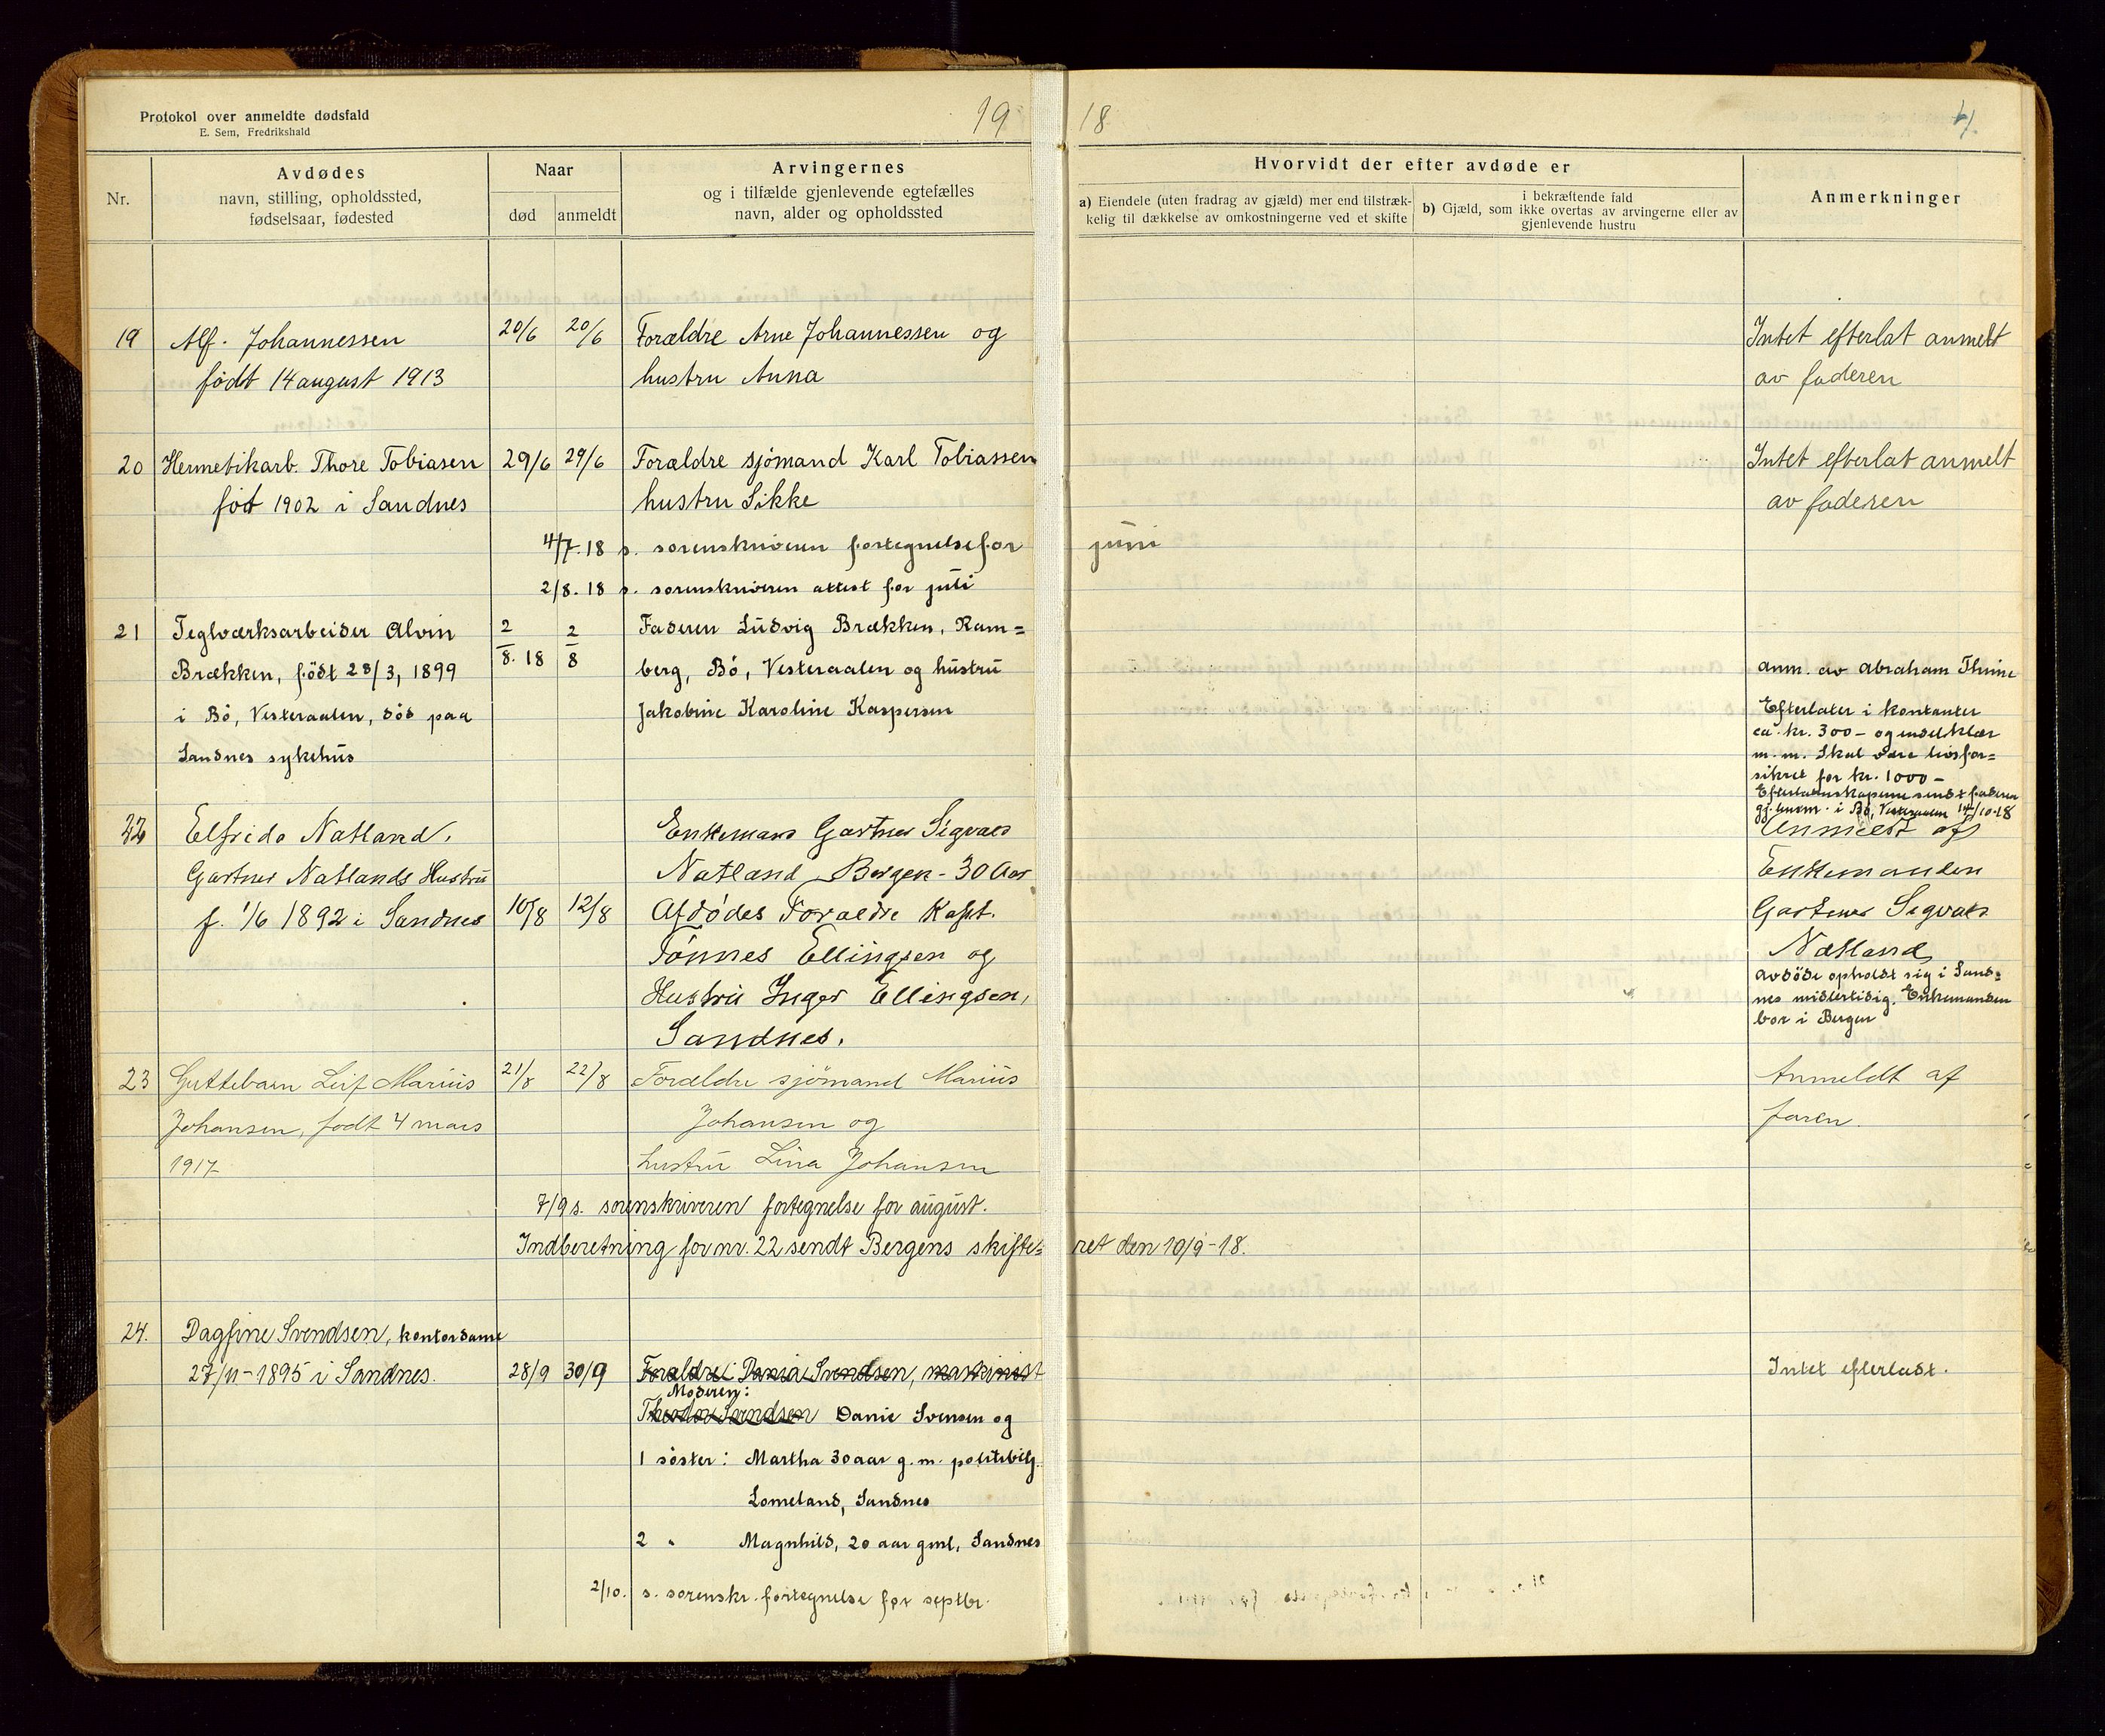 Protokol over anmeldte dødsfald
E. Sem, Fredrikshald
19
18
4.
Nr.
Avdødes
navn, stilling, opholdssted,
fødselsaar, fødested
Naar
død
anmeldt
Arvingernes
og i tilfælde gjenlevende egtefælles
navn, alder og opholdssted
Hvorvidt der efter avdøde er
a) Eiendele (uten fradrag av gjæld) mer end tilstræk-
kelig til dækkelse av omkostningerne ved et skifte
i bekræftende fald
b) Gjæld, som ikke overtas av arvingerne eller av
gjenlevende hustru
Anmerkninger
19
Alf. Johannessen
født 14 august 1913
20/6
20/6
Forældre Arne Johannessen og
hustru Anna
Intet efterlat anmelt
av faderen
20
Hermetikarb. Thore Tobiasen
føt 1902 i Sandnes
29/6
29/6
Forældre sjømand Karl Tobiassen
hustru Sikke
Intet efterlat anmelt
av faderen
4/7.18 s. sorenskriveren fortegnelse for juni
2/8.18 s. sorenskriveren attest for juli
21
Teglværksarbeider Alvin
Brækken, født 28/3, 1899
i Bø, Vesteraalen, død paa
Sandnes sykehus
2/8.18
2/8
Faderen Ludvig Brækken, Ram=
berg, Bø, Vesteraalen og hustru
Jakobine Karoline Kaspersen
anm. av Abraham Thime
Efterlater i kontanter
ca. kr. 300 – og endel klær
m.m. Skal være livsfor=
sikret for kr. 1000 –
Efterladenskaperne sendt faderen
i Bø, Vesteraalen 14/10-18
22
Elfrida Natland.
Gartner Natlands Hustru
f. 1/6 1892 i Sandnes
10/8
12/8
Enkemand Gartner Sigvald
Natland Bergen - 30 Aar
Afdødes Foraedre Kapt.
Tønnes Ellingsen og
Hustru Inger Ellingsen,
Sandnes.
Anmeldt af
Enkemanden
Gartner Sigvald
Natland
avdøde opholdt sig i Sand=
nes midlertidig. Enkemanden
bor i Bergen
23
Guttebarn Leif Marius
Johansen, født 4 mars
1917
21/8
22/8
Forældre sjømand Marius
Johansen og
hustru Lina Johansen
Anmeldt af
faren.
7/9 s. sorenskriveren fortegnelse for august.
Indberetning for nr. 22 sendt Bergens skifte= ret den 10/9-18.
24.
Dagfine Svendsen, kontordame
27/11-1895 i Sandnes.
28/9
30/9
Forældre: Dania Svendsen, maskinist
Moderen:
Theodor Svendsen Danie Svensen og
1 søster: Martha 30 aar g.m. politibetj.
Lomeland, Sandnes
2 " Magnhild, 20 aar gml, Sandnes
Intet efterladt.
2/10. s. sorenskr. fortegnelse for septbr.